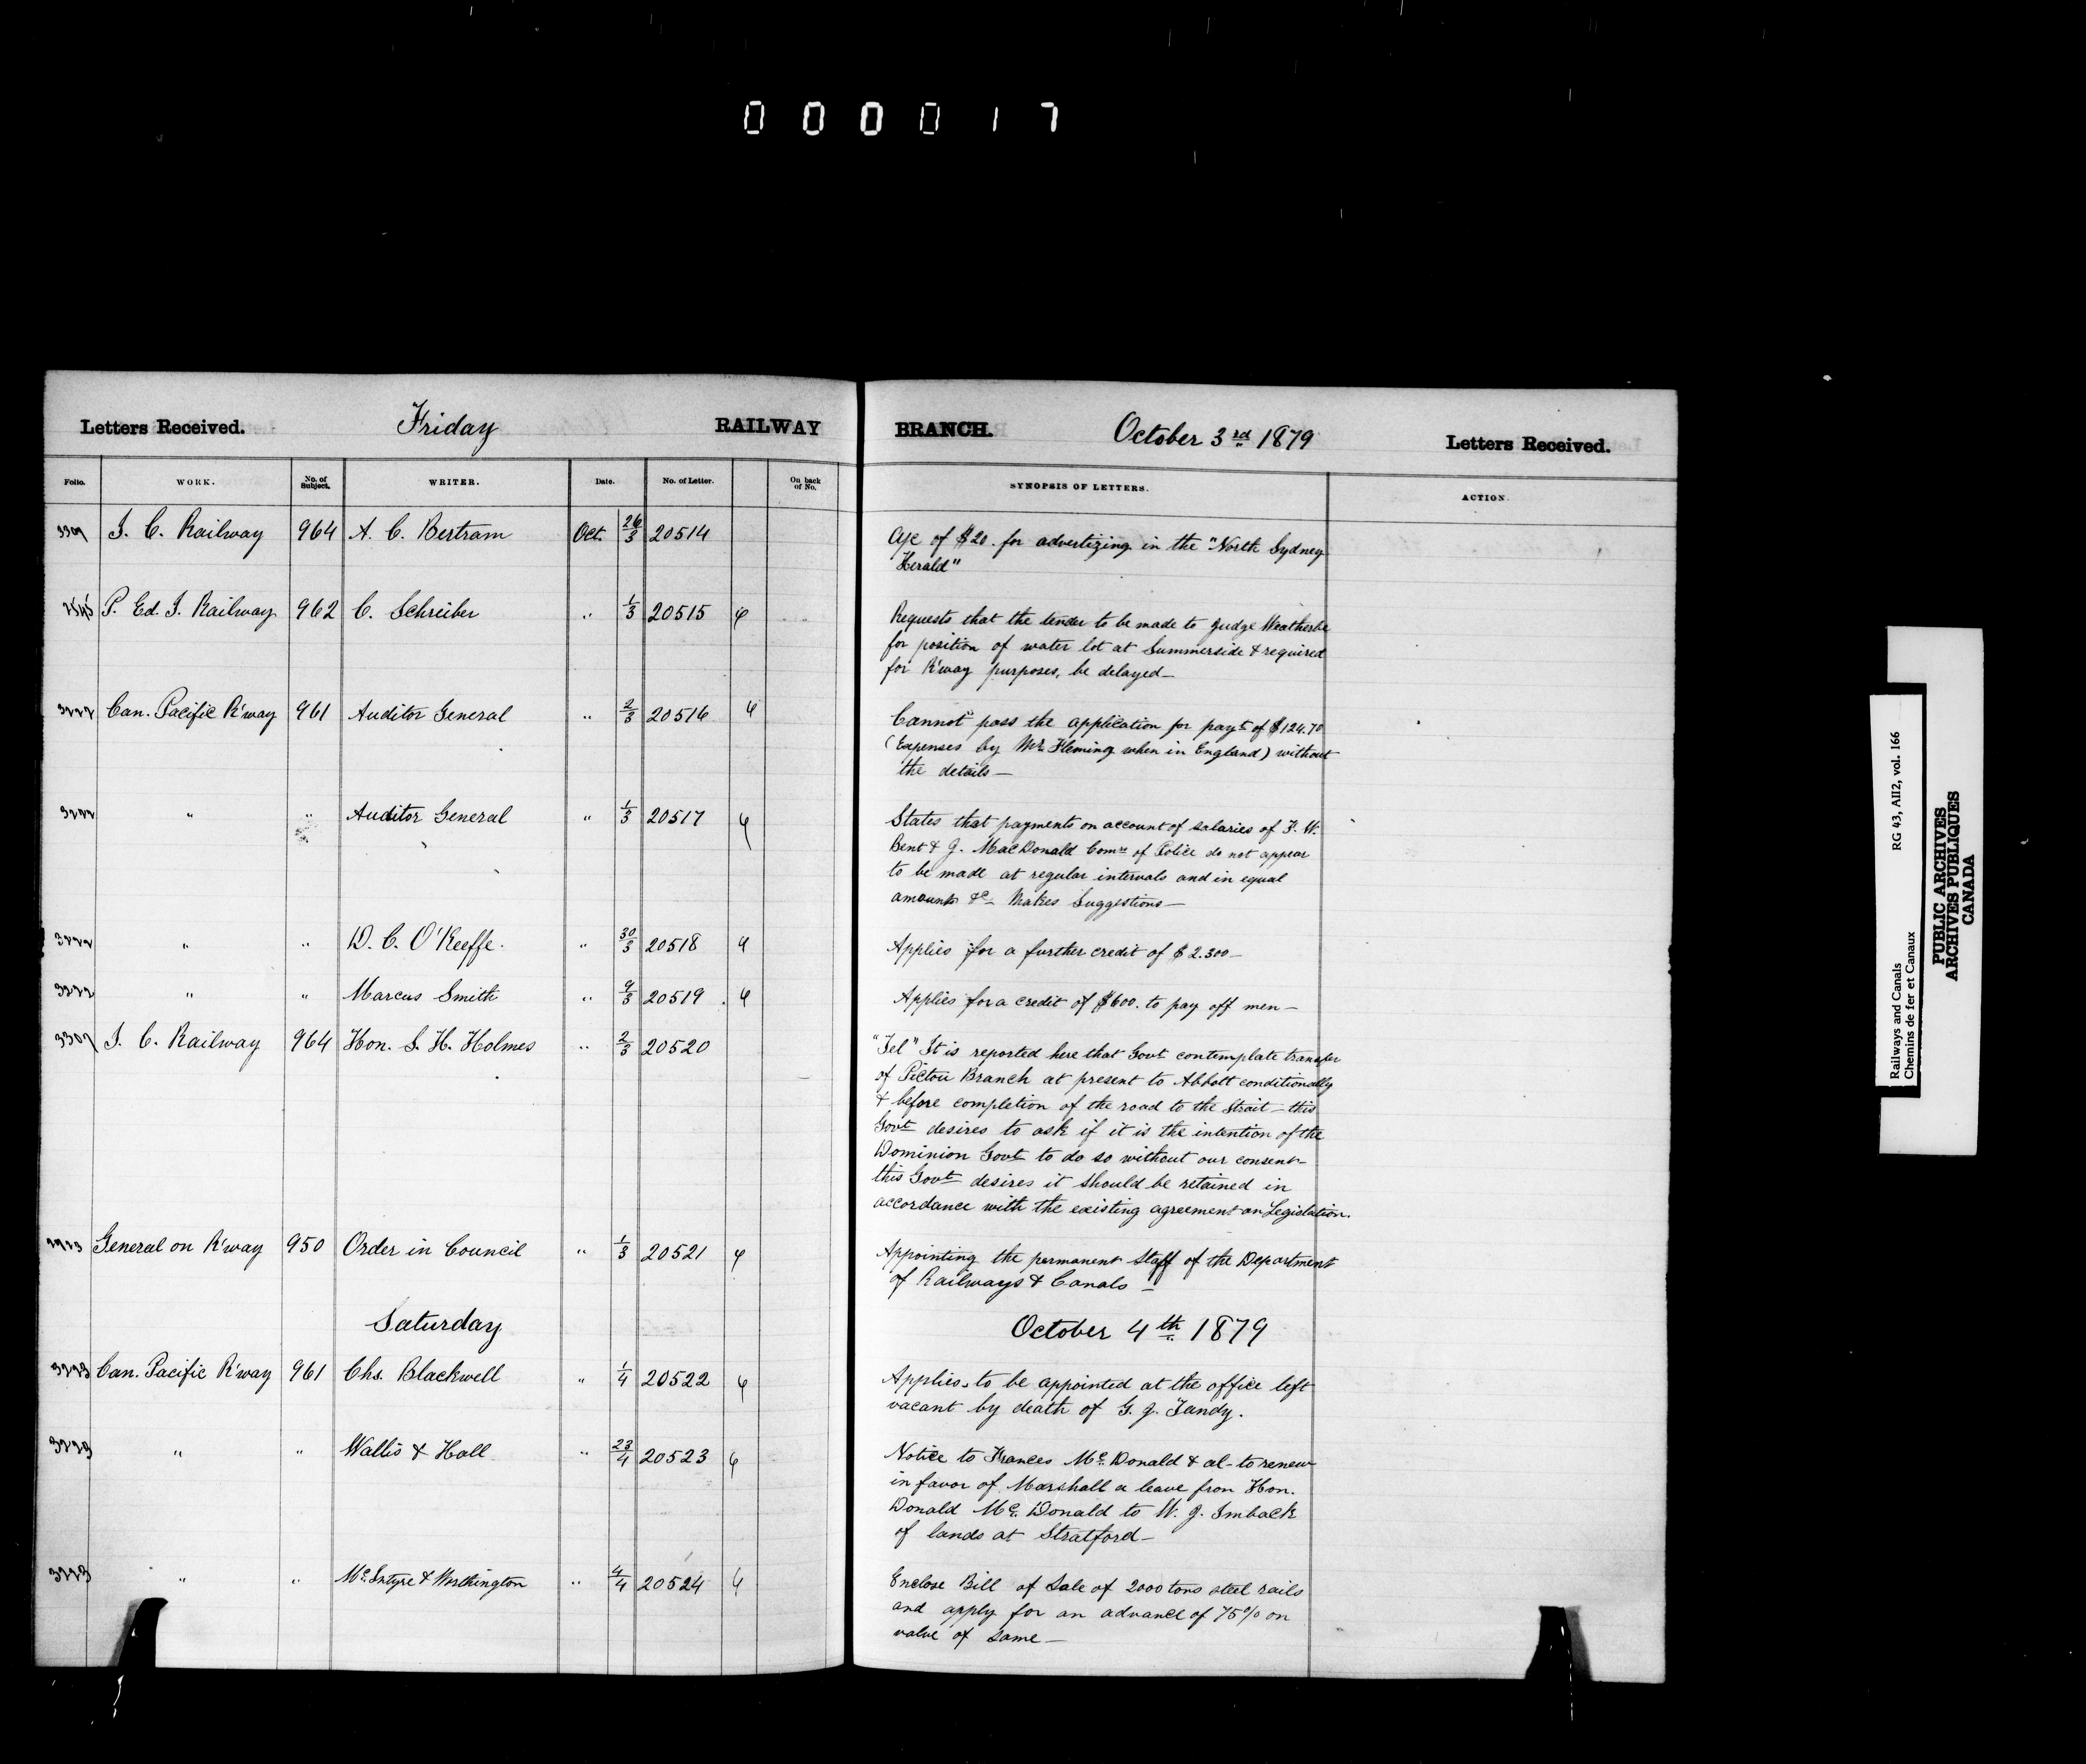 000017
Letters Received. Friday RAILWAY BRANCH. October 3rd 1879 Letters Received.
Folio. WORK. No. of Subject. WRITER. Date. No. of Letter. On back of No. SYNOPSIS OF LETTERS. ACTION.
I. C. Railway 964 A. C. Bertram Oct. 26/3 20514 a/c of $20. for advertizing in the "North Sydney
Herald"
P. Ed. I. Railway 962 C. Schreiber " 1/3 20515 Requests that the tender to be made to Judge Weatherbe
for position of water lot at Summerside & required
for R'way purposes, be delayed—
3222 Can. Pacific R'way 961 Auditor General " 2/3 20516 Cannot pass the application for payt of $124.70
(Expenses by Mr. Fleming when in England) without
the details—
3222 " " Auditor General " 1/3 20517 States that payments on account of salaries of F. W.
Bent & J. MacDonald Comrs of Police do not appear
to be made at regular intervals and in equal
amounts &c— Makes Suggestions—
3222 " " D. C. O'Keeffe. " 30/3 20518 Applies for a further credit of $2.300—
3222 " " Marcus Smith " 9/3 20519 Applies for a credit of $600. to pay off men—
3307 I. C. Railway 964 Hon. S. H. Holmes " 2/3 20520 "Tel" It is reported here that Govt contemplate transfer
of Pictou Branch at present to Abbott conditionally
& before completion of the road to the Strait— this
Govt desires to ask if it is the intention of the
Dominion Govt to do so without our consent—
this Govt desires it should be retained in
accordance with the existing agreement on Legislation.
General on R'way 950 Order in Council " 1/3 20521 Appointing the permanent Staff of the Department
of Railways & Canals—
Saturday October 4th 1879
3223 Can. Pacific R'way 961 Chs. Blackwell " 1/4 20522 Applies to be appointed at the office left
vacant by death of G. J. Tandy.
3223 " " Wallis & Hall " 23/4 20523 Notice to Frances McDonald & al— to renew
in favor of Marshall a leave from Hon.
Donald McDonald to W. J. Imback
of lands at Stratford—
3223 " " McIntyre & Worthington " 4/4 20524 Enclose Bill of Sale of 2000 tons steel rails
and apply for an advance of 75% on
value of same—
Railways and Canals RG 43, AII2, vol. 166
Chemins de fer et Canaux
PUBLIC ARCHIVES
ARCHIVES PUBLIQUES
CANADA